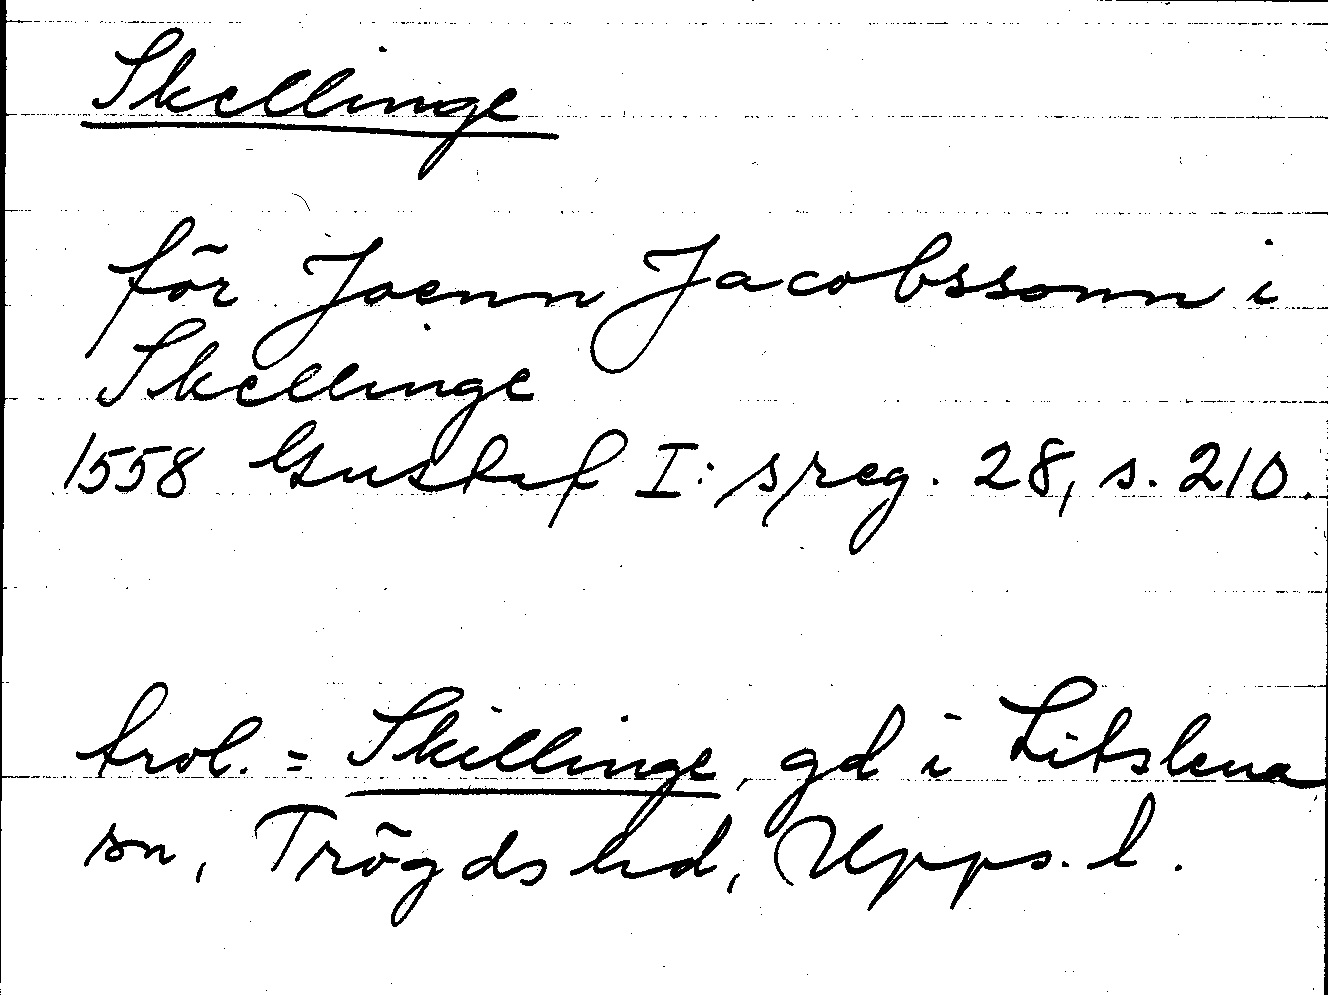 Skellinge
för Joenn Jacobssonn i
Skellinge
1558 Gustaf I:s reg. 28, s. 210.
trol. = Skillinge, gd i Litslena
sn, Trögds hd, Upps. l.